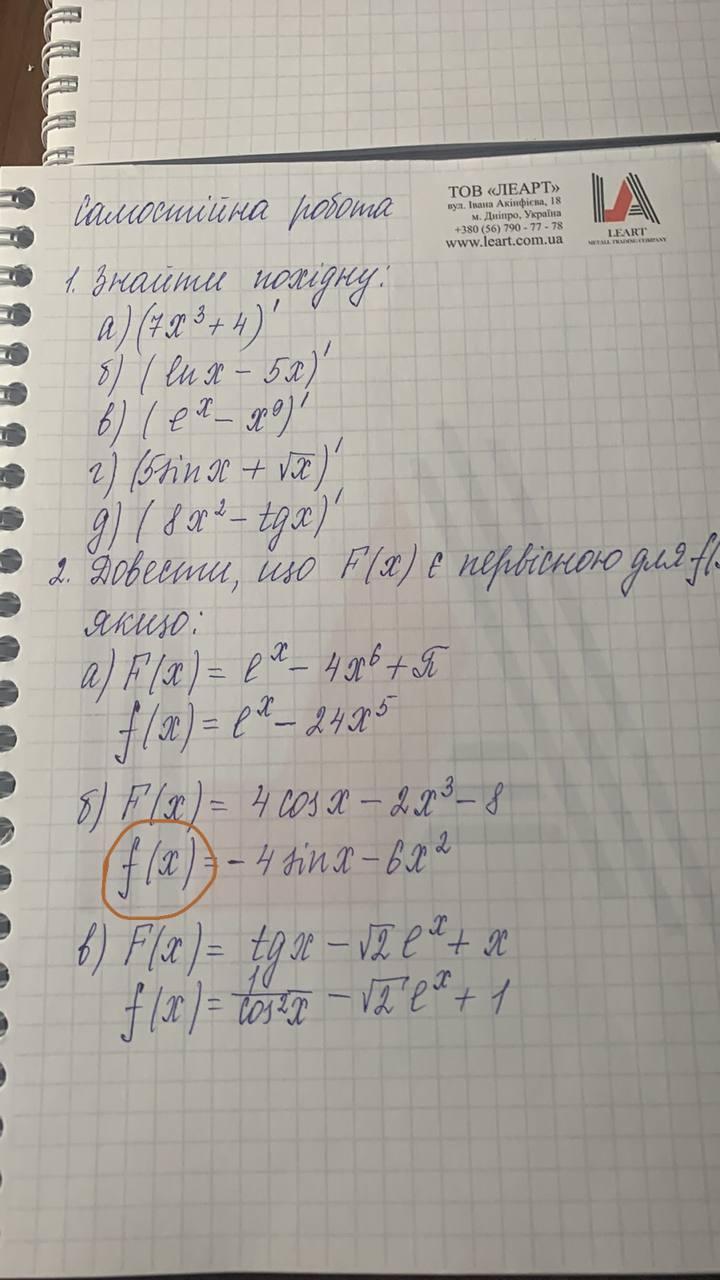 Самостійна робота
ТОВ «ЛЕАРТ»
вул. Івана Акінфієва, 18
м. Дніпро, Україна
+380 (56) 790 - 77 - 78
www.leart.com.ua
LEART
METALL TRADING COMPANY
1. Знайти похідну:
а) (7x³ + 4)'
б) (ln x - 5x)'
в) (eˣ - x⁹)'
г) (5sin x + √x)'
д) (8x² - tgx)'
2. Довести, що F(x) є первісною для f(
якщо:
а) F(x) = eˣ - 4x⁶ + π
f(x) = eˣ - 24x⁵
б) F(x) = 4 cos x - 2x³ - 8
f(x) = - 4 sin x - 6x²
в) F(x) = tg x - √2 eˣ + x
f(x) = 1/cos²x - √2 eˣ + 1